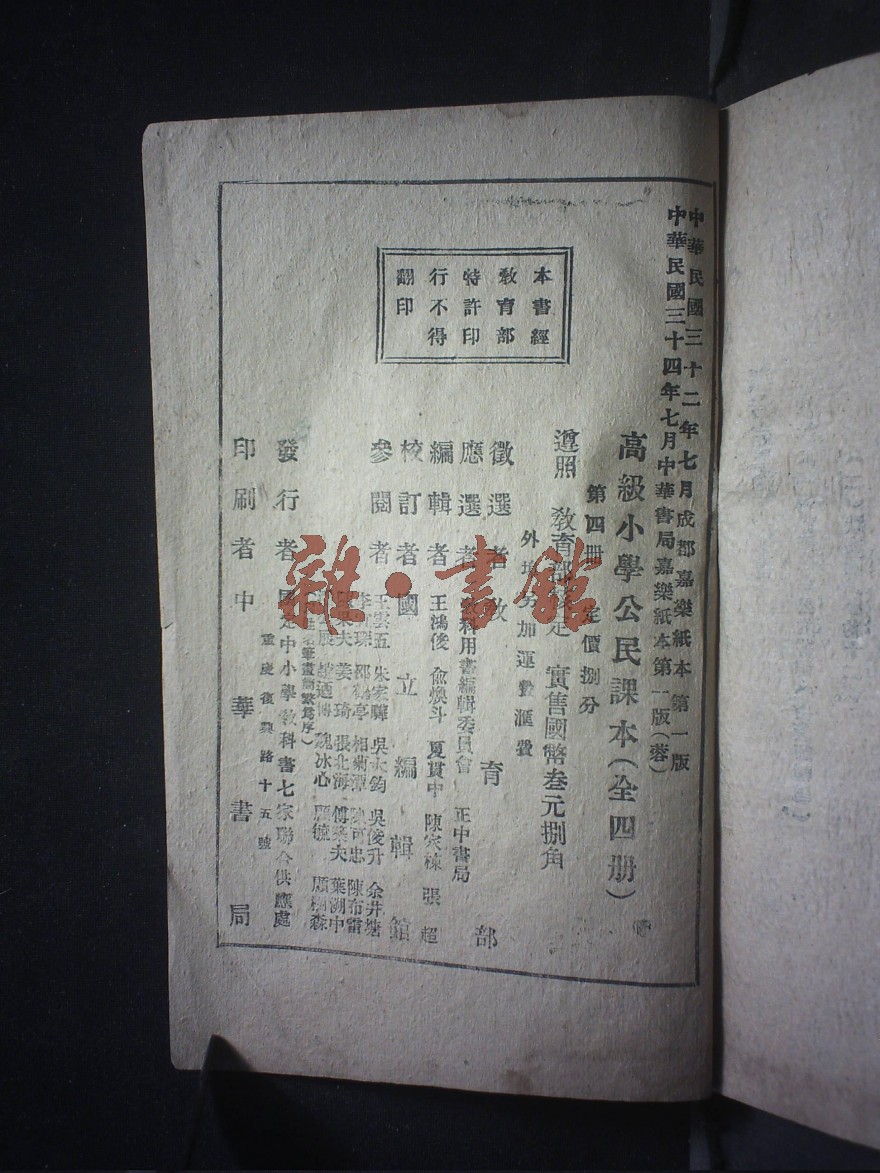 中華民國三十二年七月成都嘉樂紙本第一版
中華民國三十四年七月中華書局嘉樂紙本第一版(蓉)
高級小學公民課本(全四册)
第四册 定價捌分
遵照 教育部 定 實售國幣叁元捌角
外埠另加運費滙費
本書經
教育部
特許印
行不得
翻印
徵選者教育部
應選者 教科用書編輯委員會 正中書局
編輯者 王鴻俊 俞煥斗 夏貫中 陳 棟 張超
校訂者國立編輯館
參閱者 王雲五 朱家驊 吳大鈞 吳俊升 余井塘
李 琛 邵鶴亭 相菊潭 陳可忠 陳布雷
夫 姜琦 張北海 傅築夫 葉溯中
趙迺傳 魏冰心 顧毓 顧樹森
筆畫簡繁爲序)
發行者 國定中小學教科書七家聯合供應處
重慶復興路十五號
印刷者中華書局
雜·書館